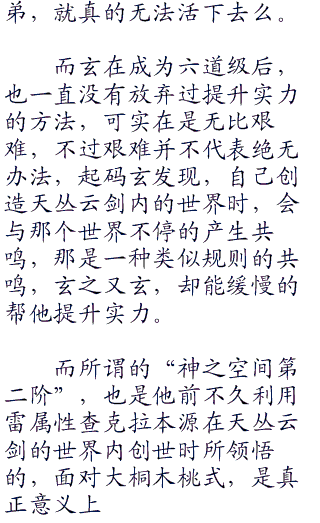 弟，就真的无法活下去么。
而玄在成为六道级后，
也一直没有放弃过提升实力
的方法，可实在是无比艰
难，不过艰难并不代表绝无
办法，起码玄发现，自己创
造天丛云剑内的世界时，会
与那个世界不停的产生共
鸣，那是一种类似规则的共
鸣，玄之又玄，却能缓慢的
帮他提升实力。
而所谓的“神之空间第
二阶”，也是他前不久利用
雷属性查克拉本源在天丛云
剑的世界内创世时所领悟
的，面对大桐木桃式，是真
正意义上